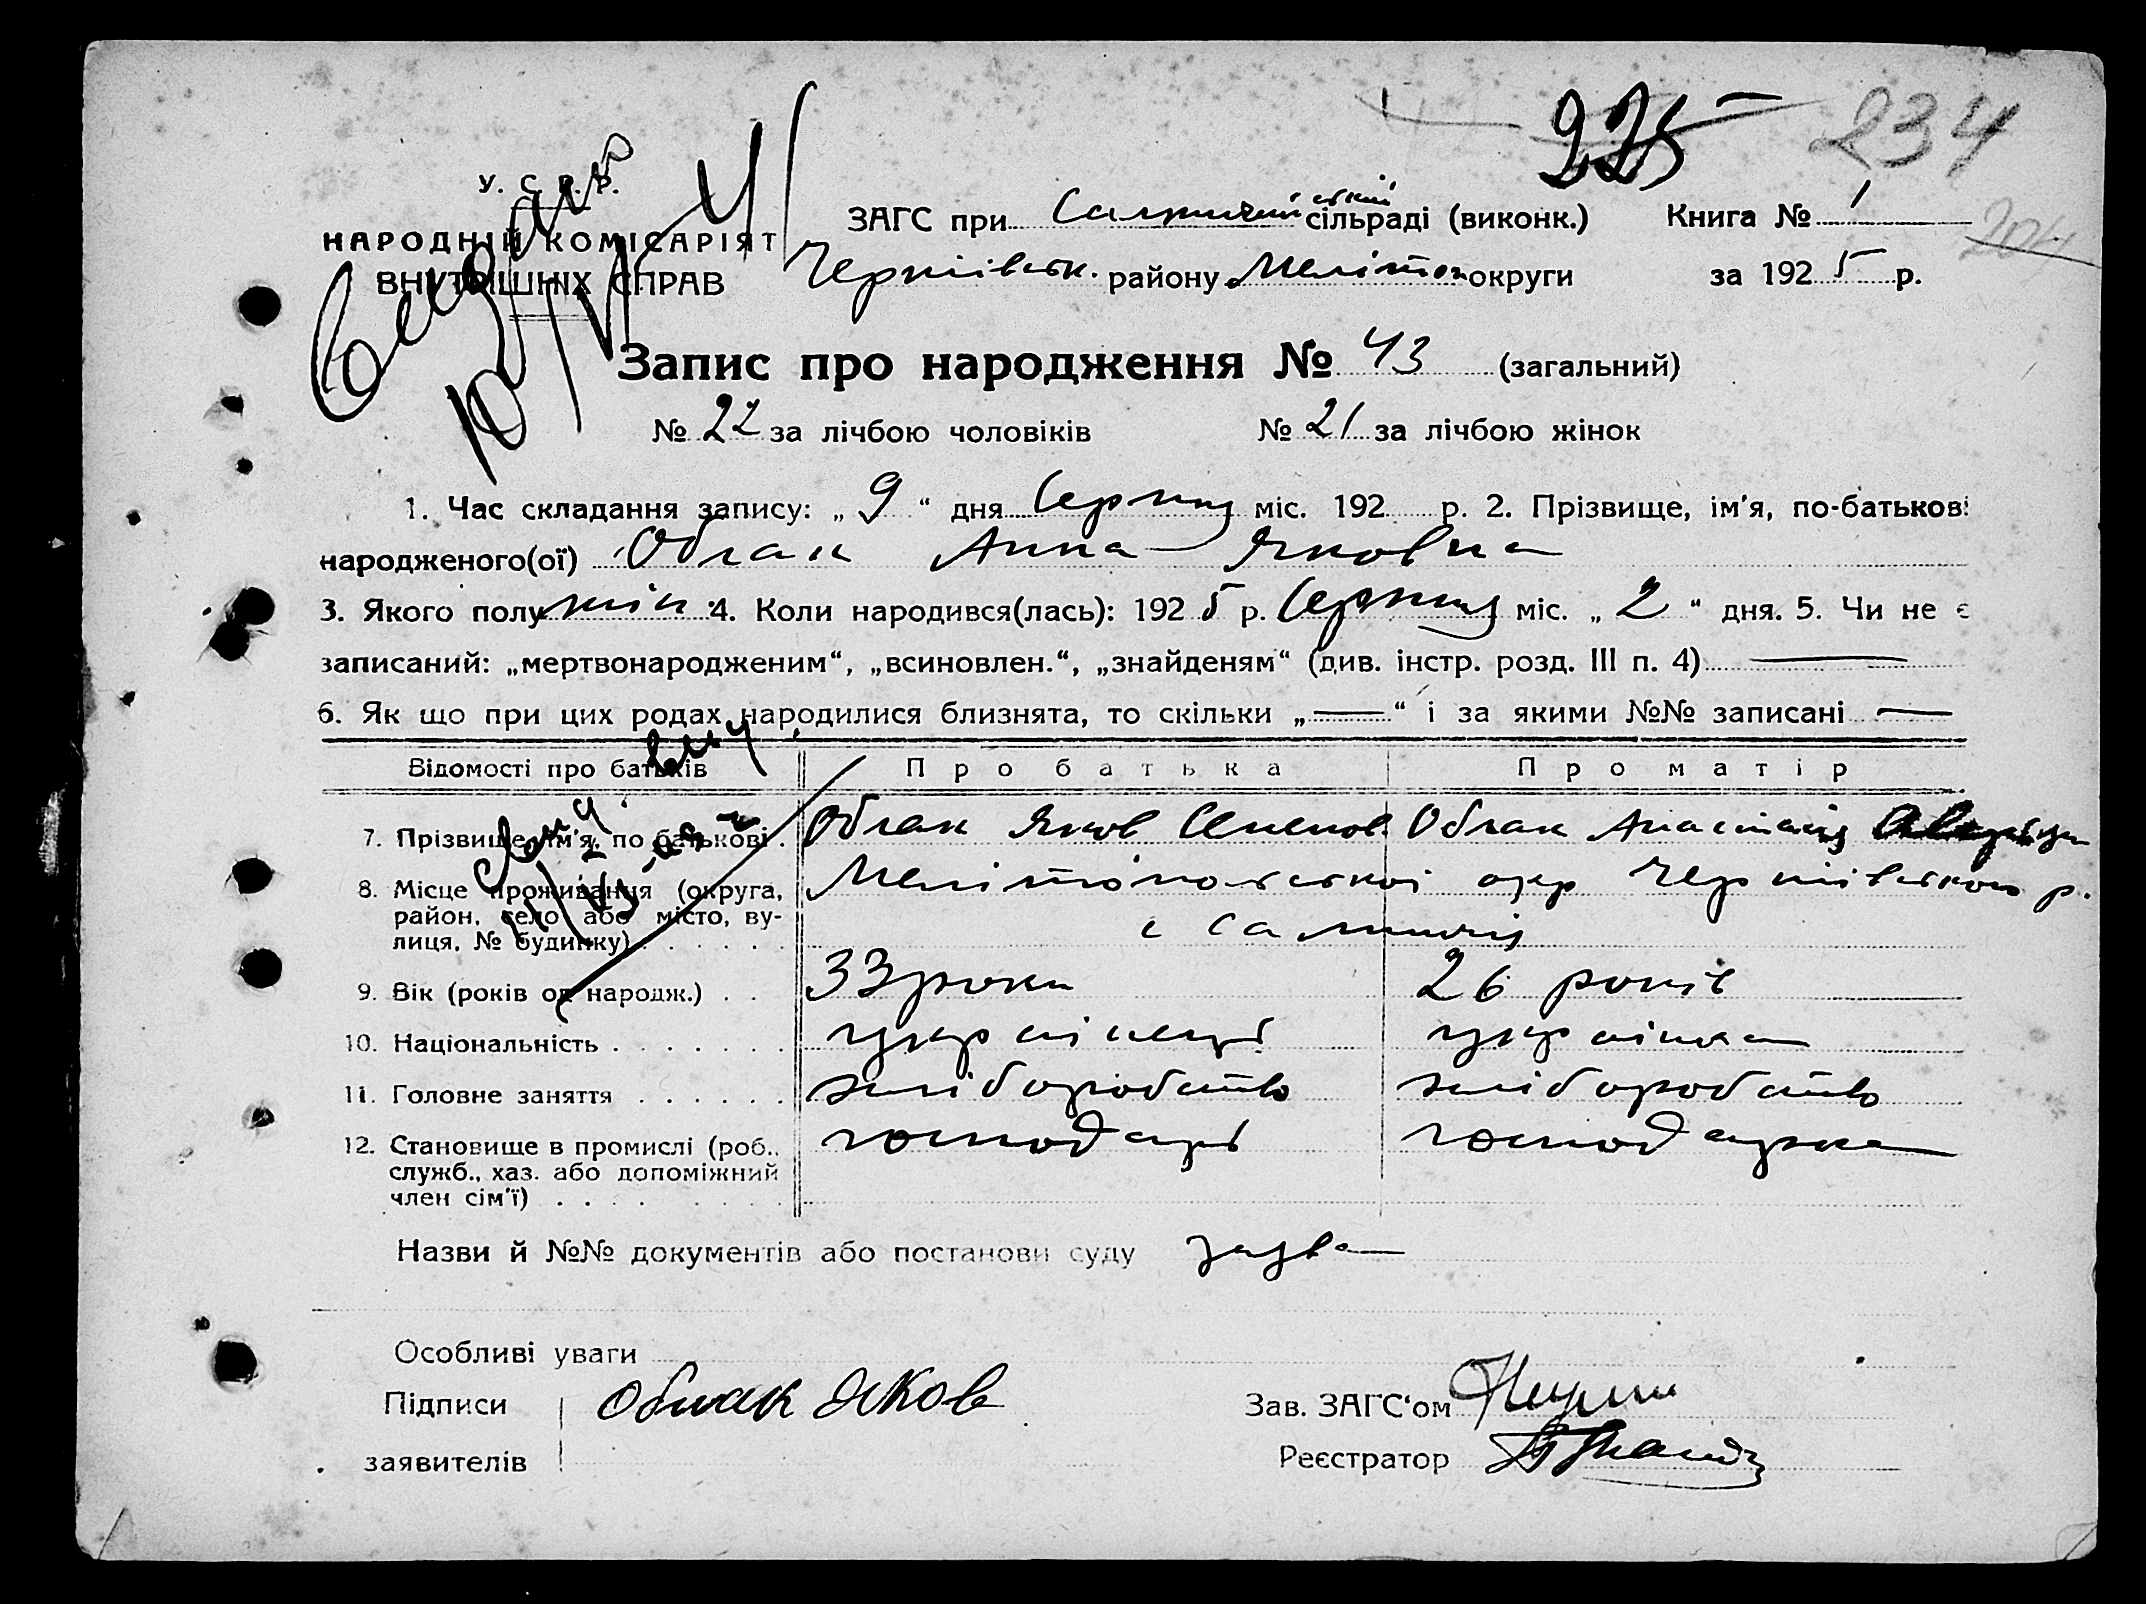 225 234
У. С. Р. Р.
НАРОДНІЙ КОМІСАРІЯТ
ВНУТРІШНІХ СПРАВ
ЗАГС при сільраді (виконк.) Книга № 1
204
Чернігівськ. району Мелітоп округи за 1925 р.
Запис про народження № 43 (загальний)
№ 22 за лічбою чоловіків № 21 за лічбою жінок
1. Час складання запису: „ 9 “ дня Серпня міс. 192 р. 2. Прізвище, ім'я, по-батькові
народженого(ої) Облак Анна Яковна
3. Якого полу жін. 4. Коли народився(лась): 1925 р. Серпня міс. „ 2 “ дня. 5. Чи не є
записаний: „мертвонародженим“, „всиновлен.“, „знайденям“ (див. інстр. розд. III п. 4) —
6. Як що при цих родах народилися близнята, то скільки „ — “ і за якими №№ записані —
Відомості про батьків Про батька Про матір
7. Прізвище, ім'я, по батькові . Облак Яков Семенов Облак Анастасія
8. Місце проживання (округа, Мелітопольської окр Чернігівського р.
район, село або місто, ву-
лиця, № будинку) . . . . . . с
9. Вік (років од народж.) . . 33 роки 26 років
10. Національність . . . . . . . українець українка
11. Головне заняття . . . . . . хліборобство хліборобство
12. Становище в промислі (роб., господарь господарка
служб., хаз. або допоміжний
член сім'ї) . . . . . . . .
Назви й №№ документів або постанови суду заява
Особливі уваги
Підписи Облак Яков Зав. ЗАГС‘ом
заявителів Реєстратор